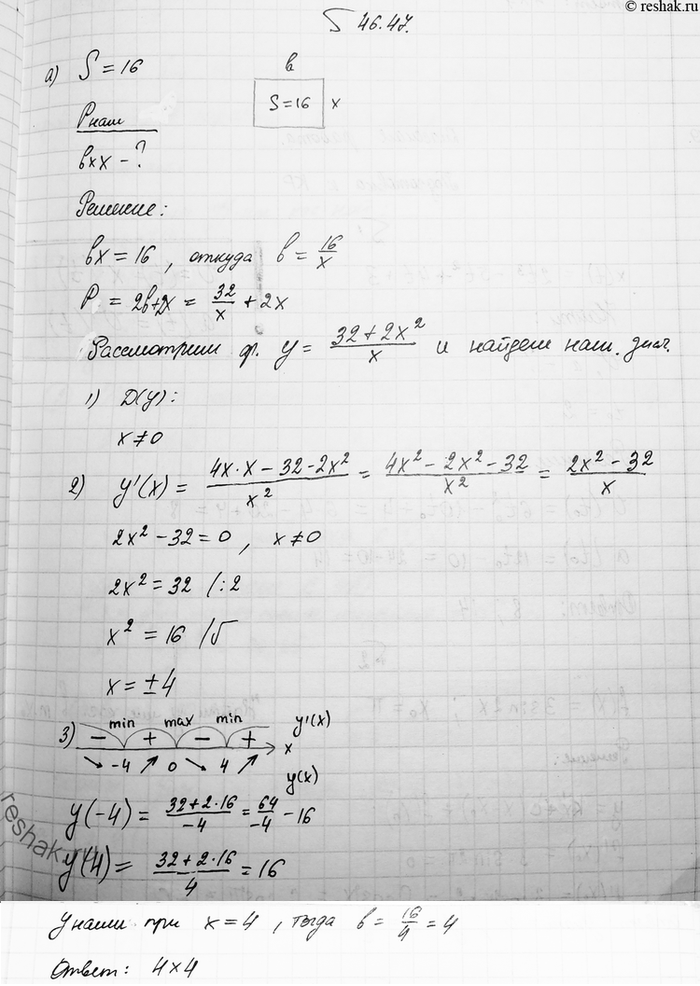 © reshak.ru
§ 46.47.
а) S = 16
в
S=16 x
Pнаим
вхх - ?
Решение:
вx = 16 , откуда в = 16/x
P = 2в+2x = 32/x + 2x
Рассмотрим ф. y = (32+2x²)/x и найдем наим. знач.
1) D(y):
x ≠ 0
2) y'(x) = (4x·x − 32 − 2x²)/x² = (4x² − 2x² − 32)/x² = (2x² − 32)/x
2x² − 32 = 0 , x ≠ 0
2x² = 32 /:2
x² = 16 /√
x = ±4
3) min max min y'(x)
− + − + x
↘ -4 ↗ 0 ↘ 4 ↗ y(x)
y(-4) = (32+2·16)/-4 = 64/-4 -16
y'(4) = (32+2·16)/4 = 16
reshak
yнаим при x = 4 , тогда в = 16/4 = 4
Ответ: 4×4